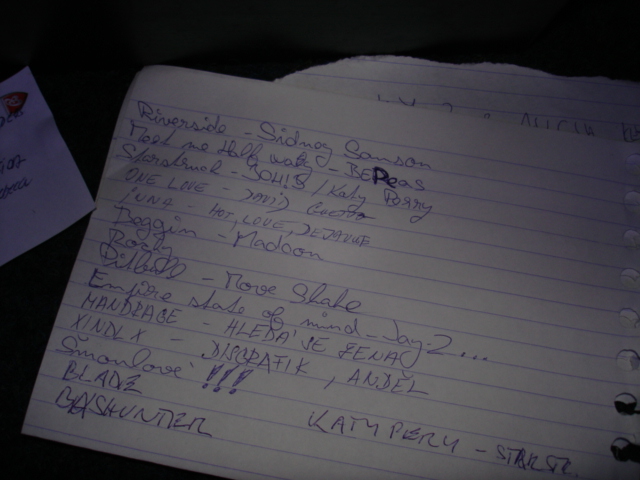 Riverside - Sidney Samson
Meet me Half way - BEPeas
Starstruck - 3OH!3 / Katy Perry
ONE LOVE - DAVID Guetta
INNA - HOT, LOVE, DEJAVUE
Beggin - Madcon
Rocky
Pitbull - Move Shake
Empire state of mind - Jay-Z ...
MANDRAGE - HLEDÁ SE ŽENA
XINDL X - DISGRAFIK, ANDĚL
Šmoulové !!!
BLADE
BASHUNTER
KATY PERY - STARSTR.